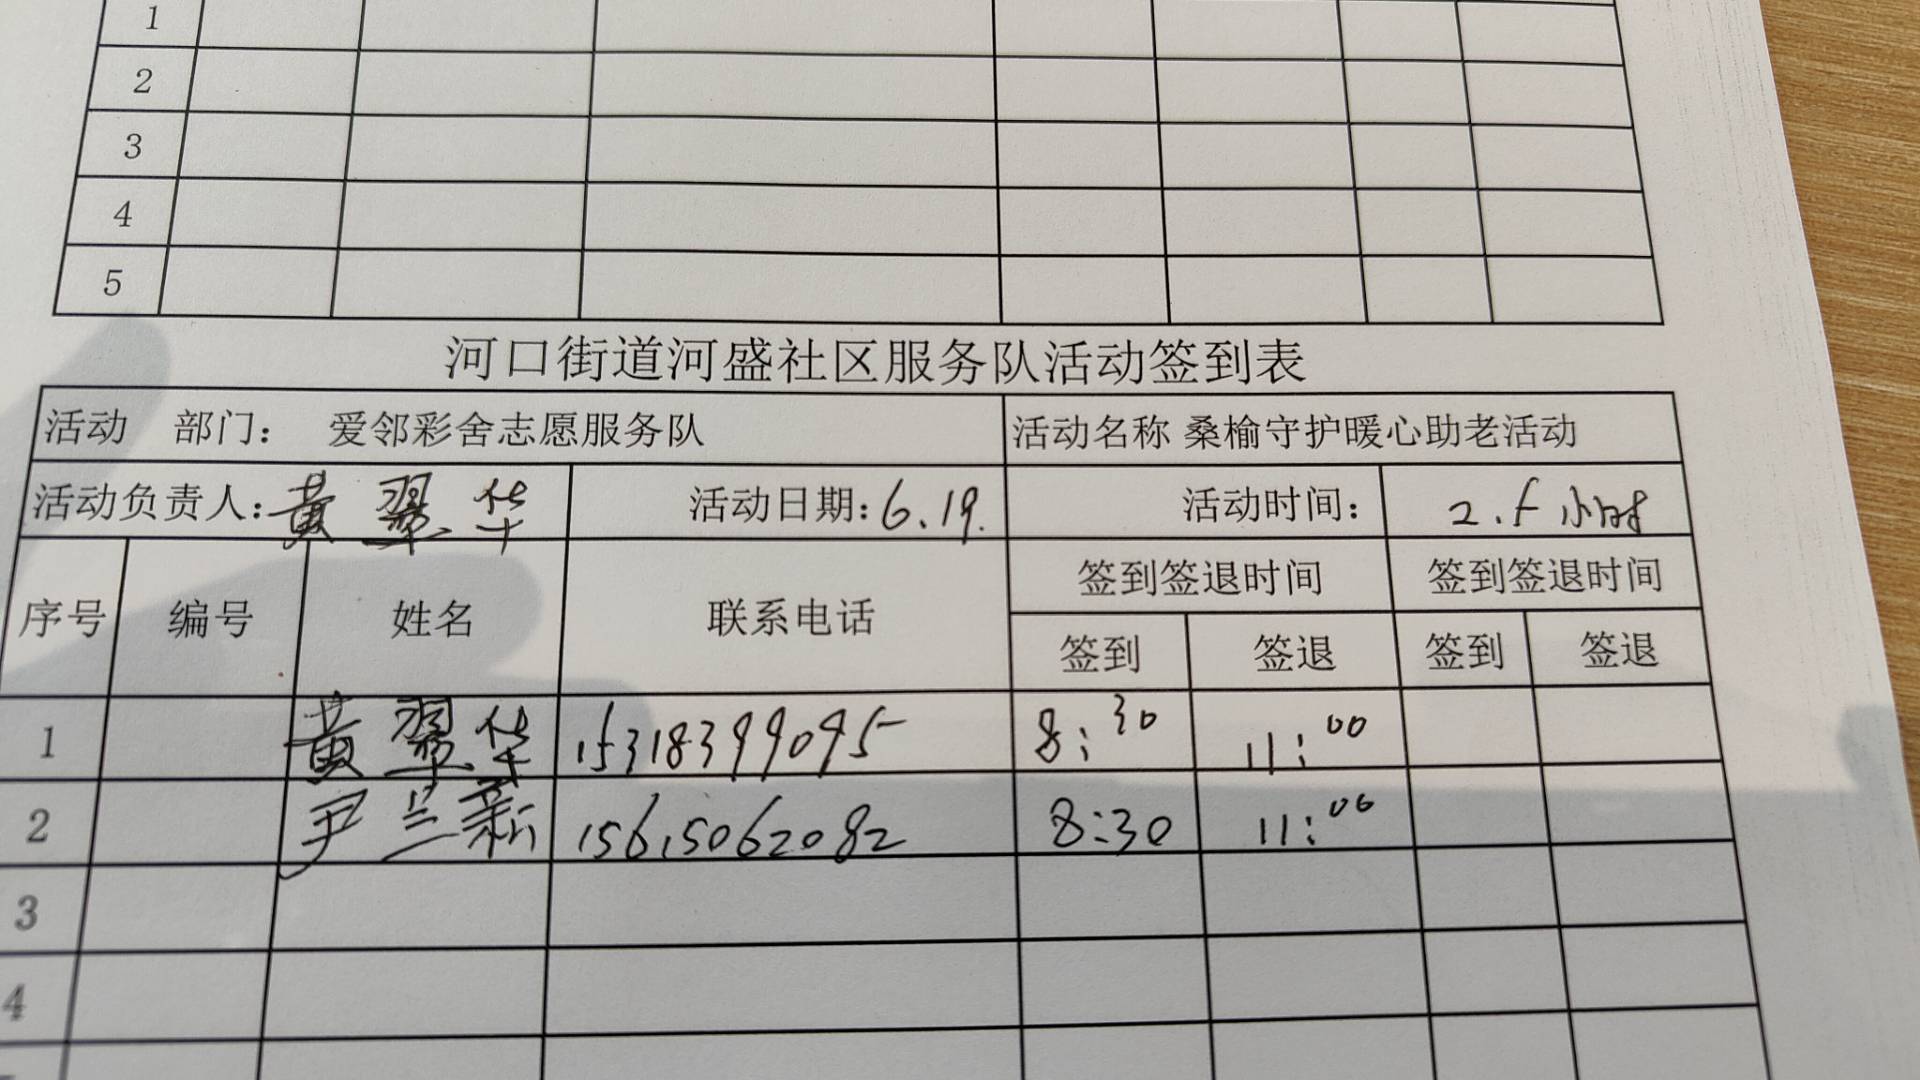 1
2
3
4
5
河口街道河盛社区服务队活动签到表
活动 部门： 爱邻彩舍志愿服务队 活动名称 桑榆守护暖心助老活动
活动负责人：黄翠华 活动日期：6.19. 活动时间： 2.5小时
序号 编号 姓名 联系电话 签到签退时间 签到签退时间
签到 签退 签到 签退
1 黄翠华 15318399095 8:30 11:00
2 尹兰新 15615062082 8:30 11:00
3
4